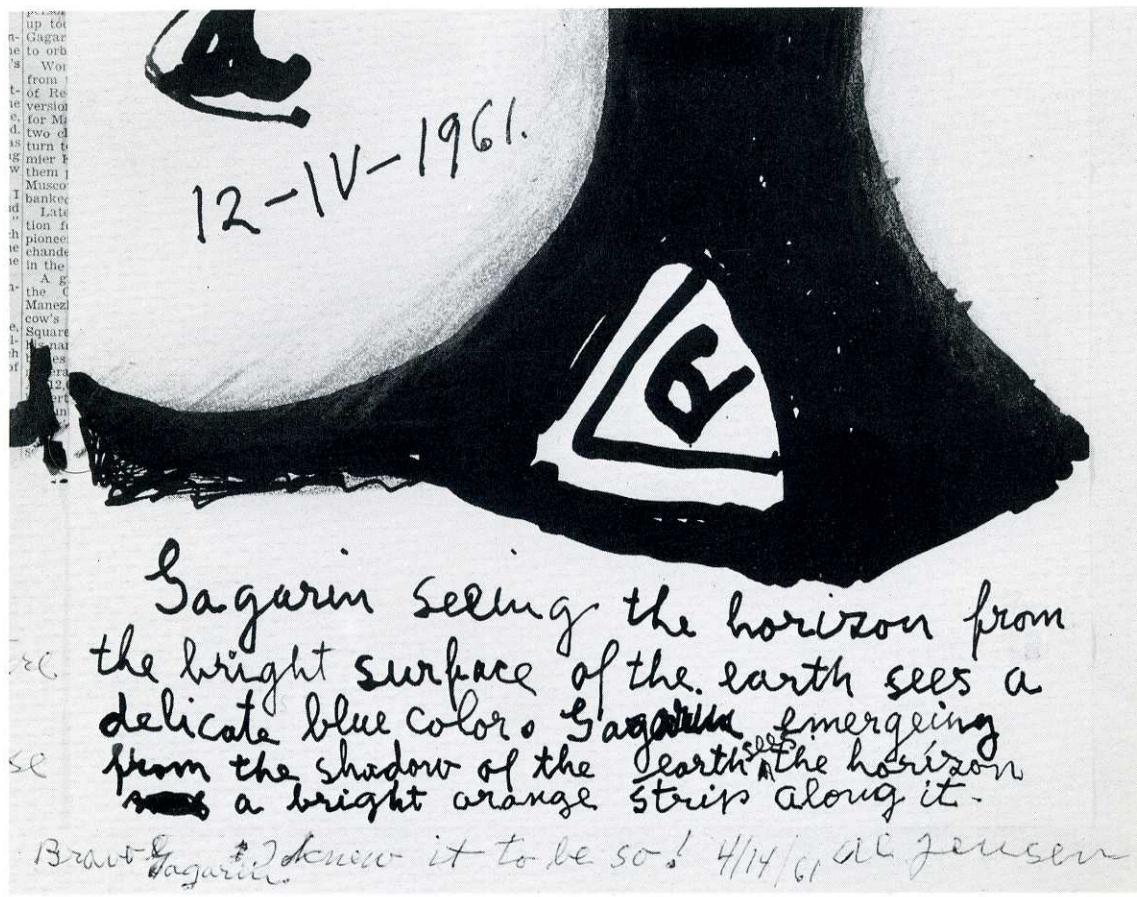 Gagar
to orb
Wor
from
of Re
version
for Ma
two cl
turn t
mier
them
Musco
banked
Late
tion f
pionee
chande
in the
A g
the
Manez
cow's
Square
12-IV-1961.
Gagarin seeing the horizon from
the bright surface of the earth sees a
delicate blue color. Gagarin emergeing
from the shadow of the earth sees the horizon
a bright orange strip along it.
Bravo Gagarin. I knew it to be so! 4/14/61 Al Jensen